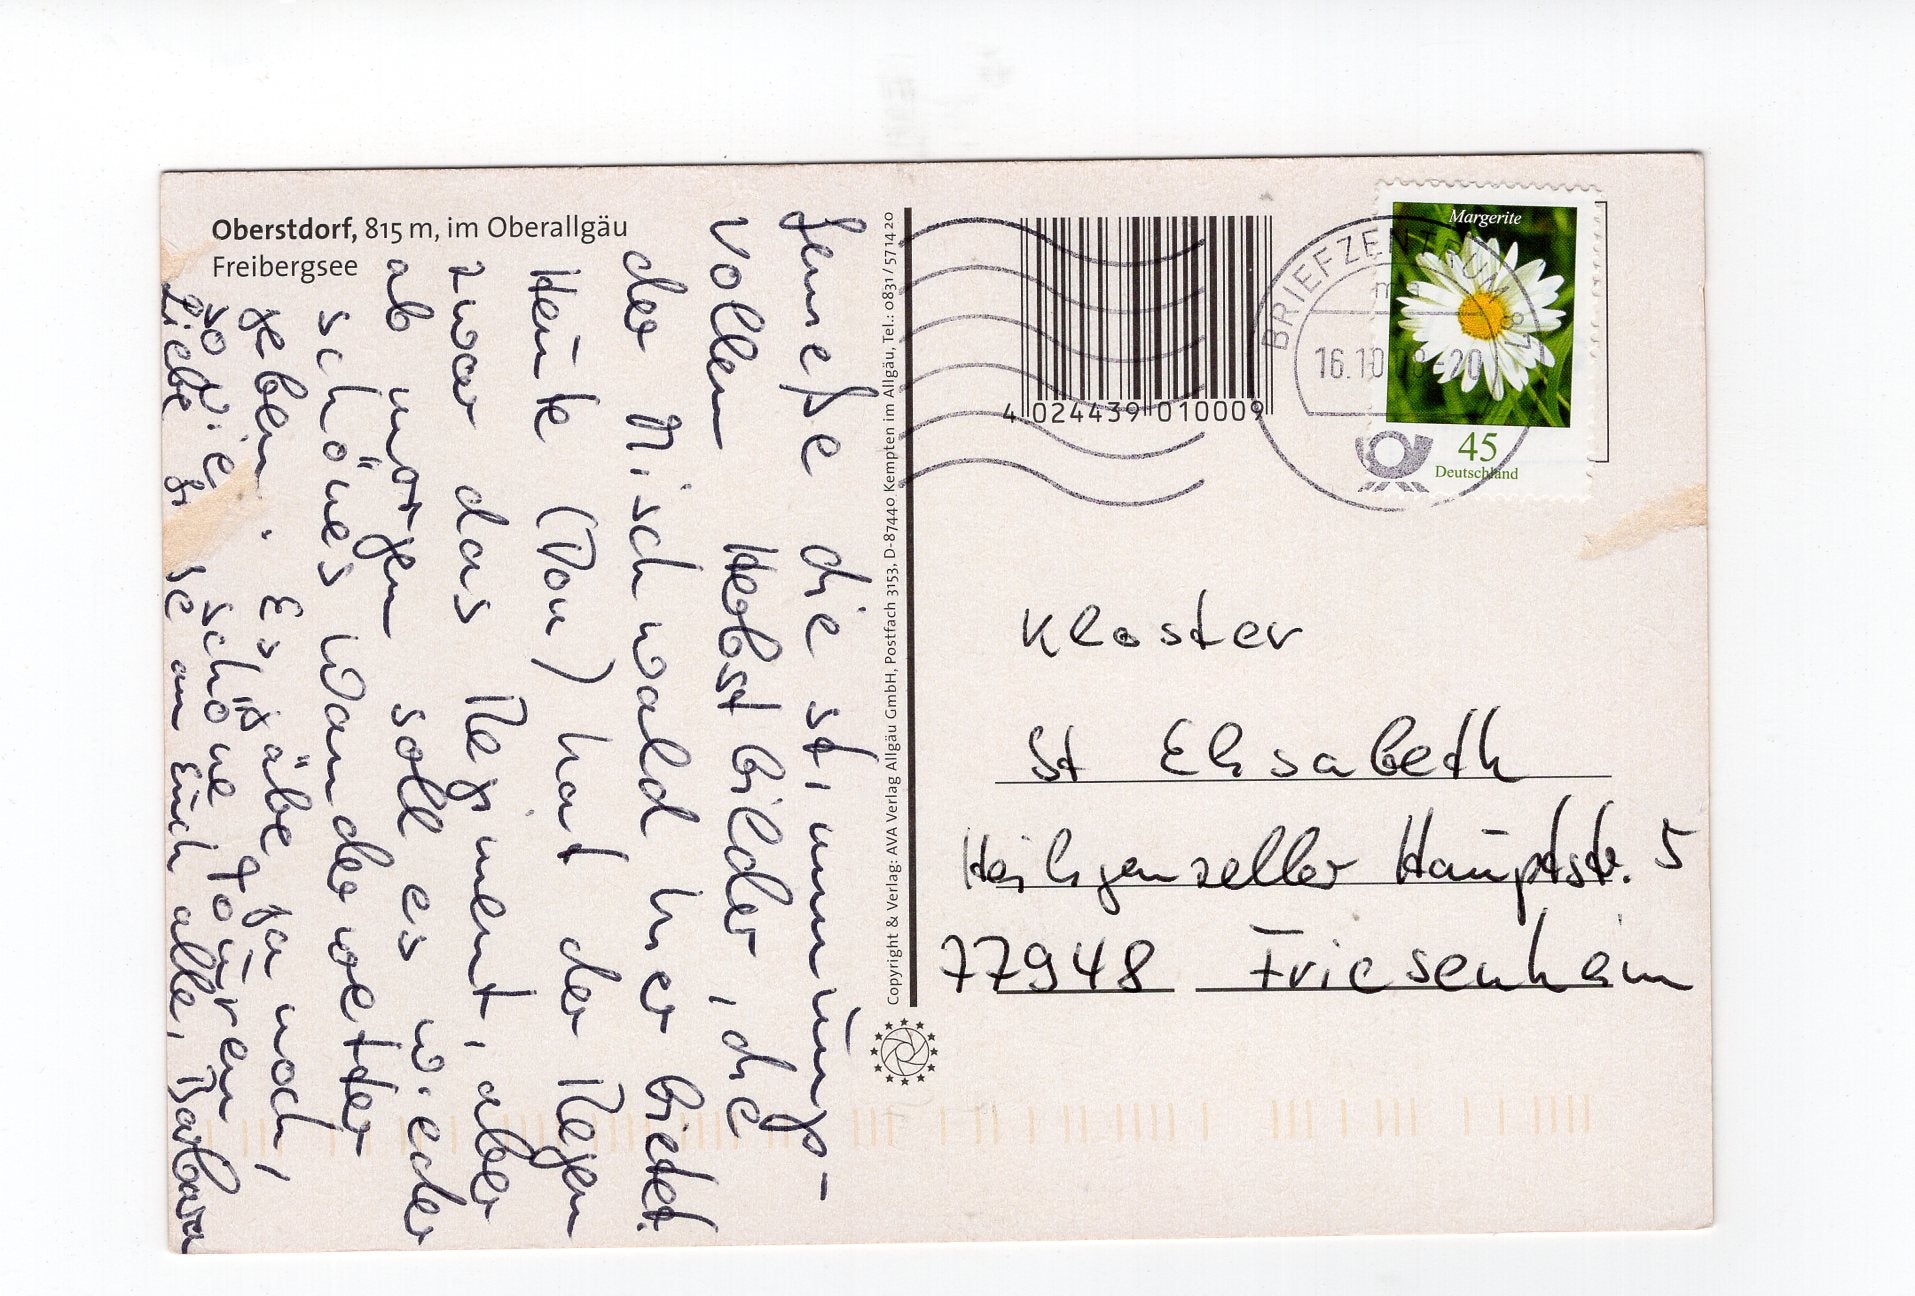 Oberstdorf, 815 m, im Oberallgäu
Freibergsee
genieße die stimmungs-
vollen Herbstbilder, die
der Mischwald hier bietet.
Heute (Don) hat der Regen
zwar das Regiment, aber
ab morgen soll es wieder
schönes Wanderwetter
geben. Es gäbe ja noch
so viele schöne Touren,
Liebe Grüße an Euch alle, Barbara
Copyright & Verlag: AVA Verlag Allgäu GmbH, Postfach 3153, D-87440 Kempten im Allgäu, Tel.: 0831/571420
4 024439 010009
BRIEFZENTRUM 87
16.10
Margerite
45
Deutschland
Kloster
St Elisabeth
Heiligenzeller Hauptstr. 5
77948 Friesenheim